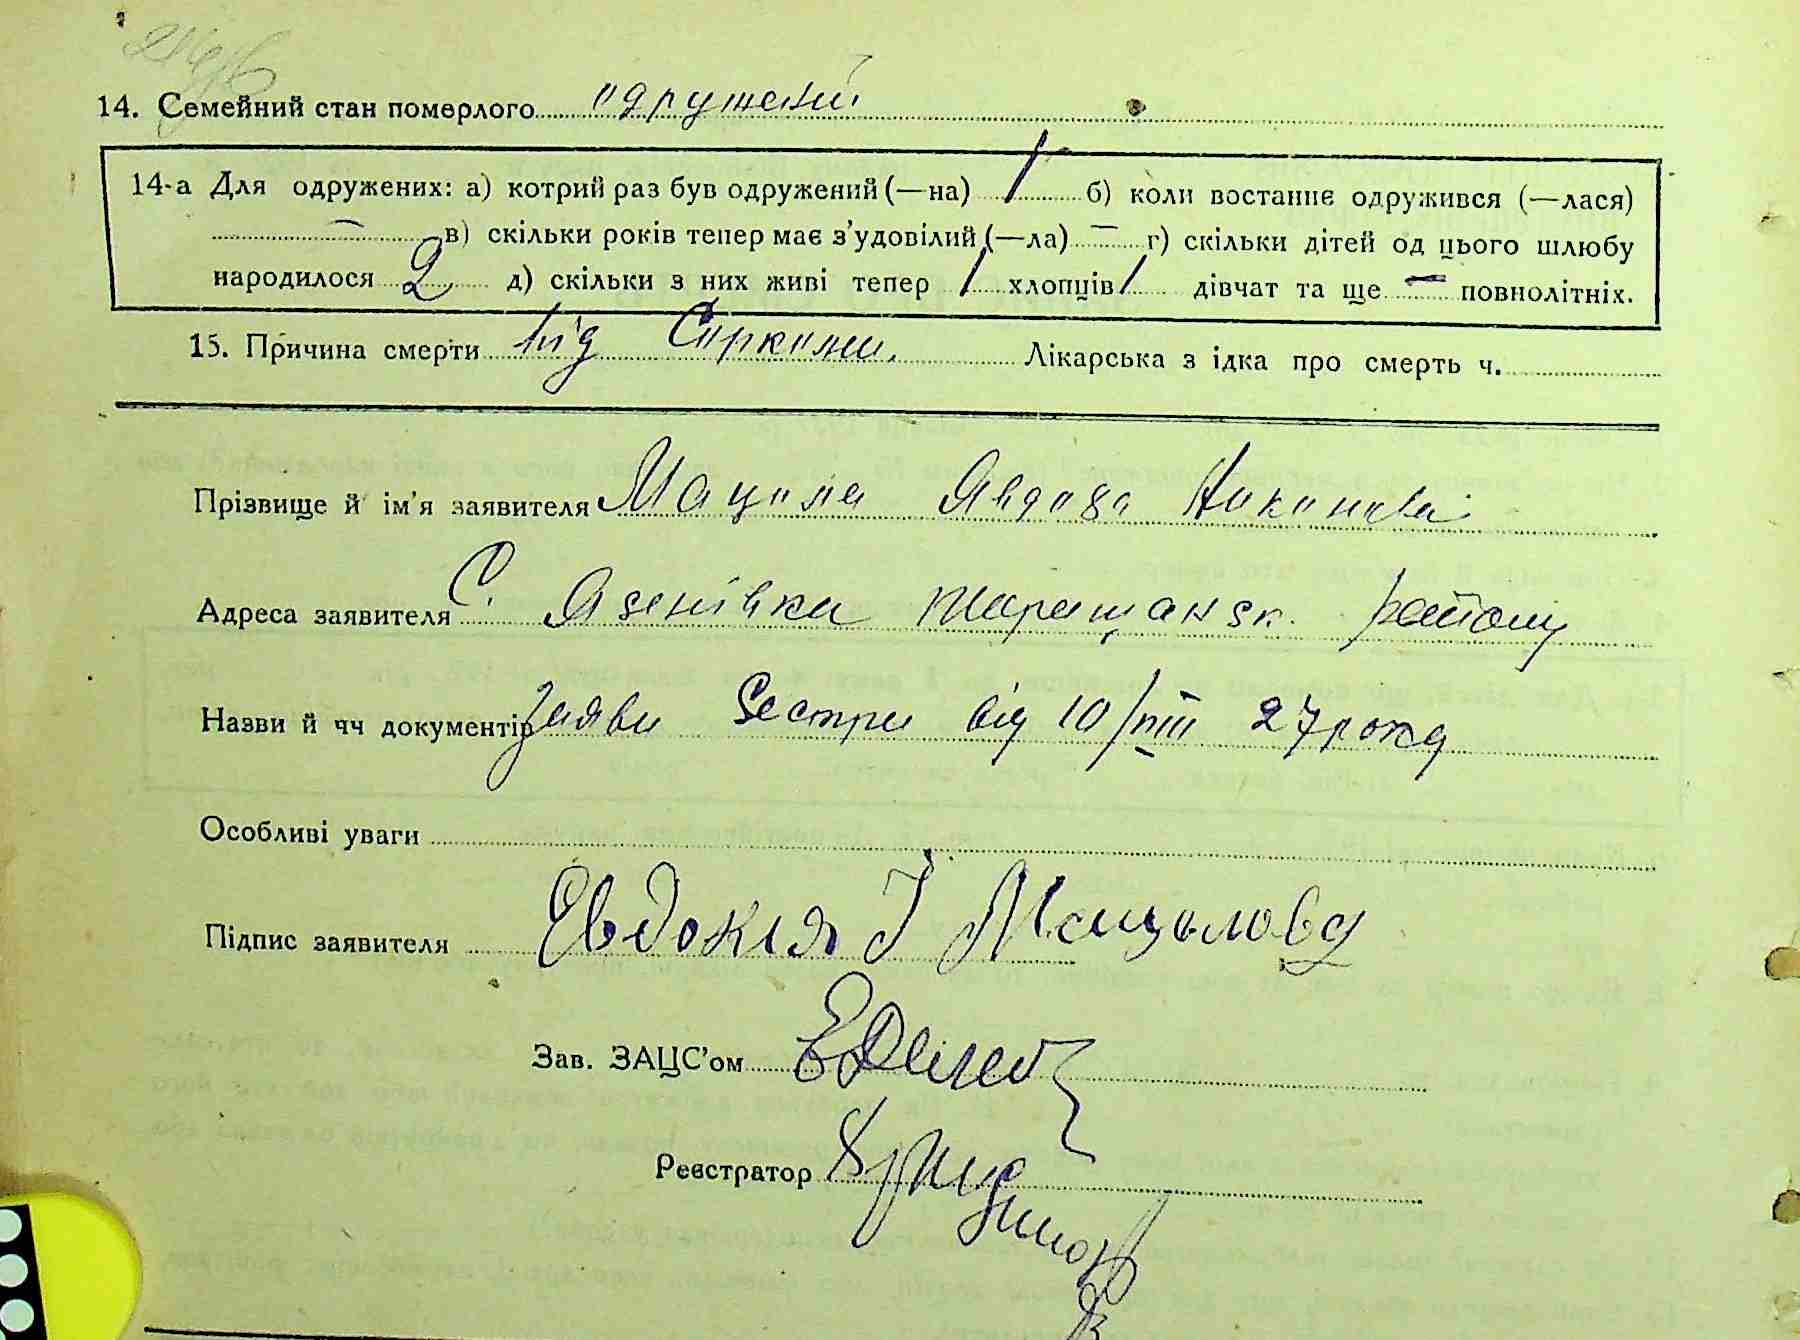 14. Семейний стан померлого одружений
14-а Для одружених: а) котрий раз був одружений (—на) 1 б) коли востаннє одружився (—лася)
— в) скільки років тепер має з’удовілий (—ла) — г) скільки дітей од цього шлюбу
народилося 2 д) скільки з них живі тепер 1 хлопців 1 дівчат та ще — повнолітніх.
15. Причина смерти від Саркоми. Лікарська з ідка про смерть ч.
Прізвище й ім’я заявителя Мацола Явдоха
Адреса заявителя С. Язенівка таращанск. району
Назви й чч документів Заява Sестри від 10/VIII 27 року
Особливі уваги
Підпис заявителя Євдокія І Мацьолова
Зав. ЗАЦС’ом
Реєстратор